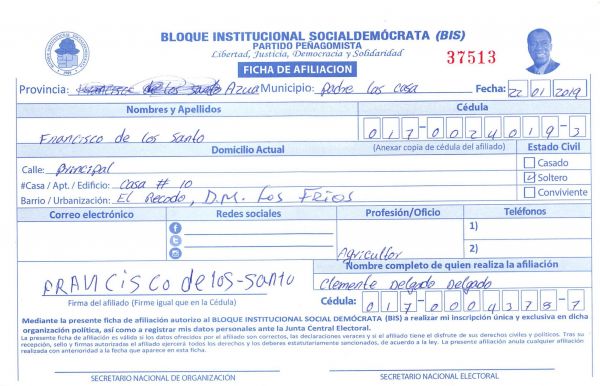 BLOQUE INSTITUCIONAL SOCIALDEMÓCRATA (BIS)
PARTIDO PEÑAGOMISTA
Libertad, Justicia, Democracia y Solidaridad
37513
FICHA DE AFILIACION
Provincia: Azua Municipio: Padre las casa Fecha: 22 01 2019
Nombres y Apellidos Cédula
Francisco de los Santo 017-0024019-3
Domicilio Actual (Anexar copia de cédula del afiliado) Estado Civil
Calle: Principal Casado
#Casa / Apt. / Edificio: Casa # 10 Soltero
Barrio / Urbanización: El Recodo, D.M. Las Frios Conviviente
Correo electrónico Redes sociales Profesión/Oficio Teléfonos
1)
Agricultor 2)
Nombre completo de quien realiza la afiliación
FRANCISCO de los-Santo Clemente Delgado Delgado
Firma del afiliado (Firme igual que en la Cédula) Cédula: 017-0004378-7
Mediante la presente ficha de afiliación autorizo al BLOQUE INSTITUCIONAL SOCIAL DEMÓCRATA (BIS) a realizar mi inscripción única y exclusiva en dicha
organización política, así como a registrar mis datos personales ante la Junta Central Electoral.
La presente ficha de afiliación es válida si los datos ofrecidos por el afiliado son correctos, las declaraciones veraces y si el afiliado tiene el disfrute de sus derechos civiles y políticos. Tras su
recepción, sello y firmas autorizadas el afiliado ejercerá todos los derechos y los deberes estatutariamente sancionados, de acuerdo a la ley. La presente afiliación anula cualquier afiliación
realizada con anterioridad a la fecha que aparece en esta ficha.
SECRETARIO NACIONAL DE ORGANIZACIÓN SECRETARIO NACIONAL ELECTORAL